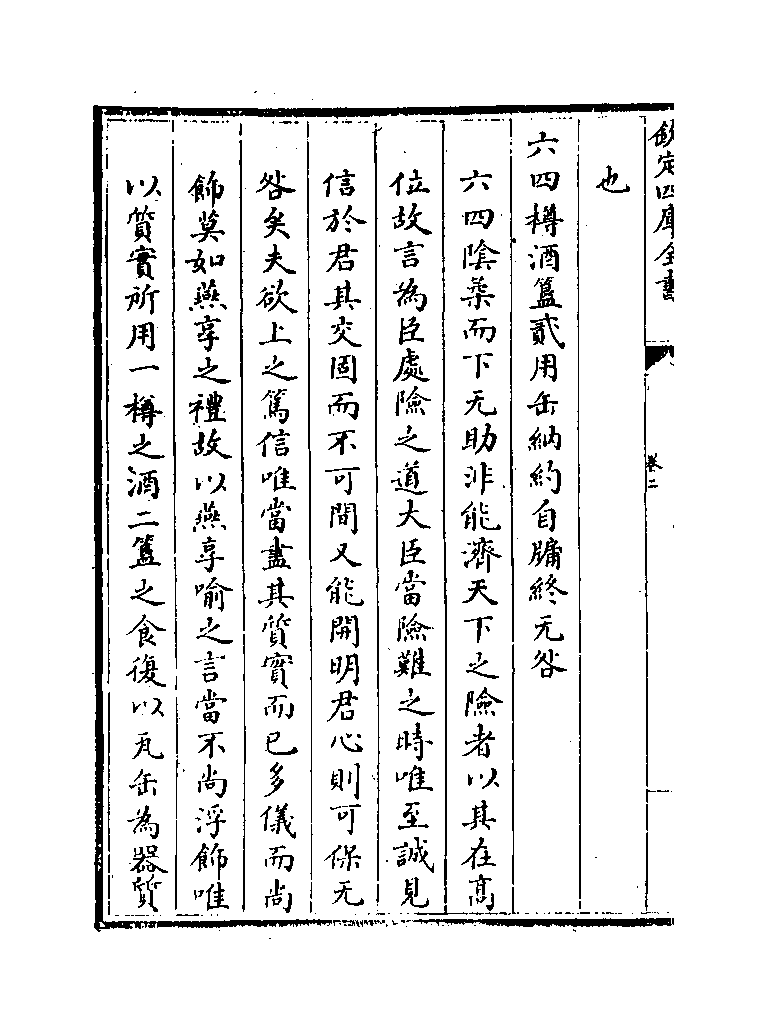 欽定四庫全書
卷二
也
六四樽酒簋貳用缶納約自牖終无咎
六四陰柔而下无助非能濟天下之險者以其在高
位故言為臣處險之道大臣當險難之時唯至誠見
信於君其交固而不可間又能開明君心則可保无
咎矣夫欲上之篤信唯當盡其質實而已多儀而尚
飾莫如燕享之禮故以燕享喻之言當不尚浮飾唯
以質實所用一樽之酒二簋之食復以瓦缶為器質